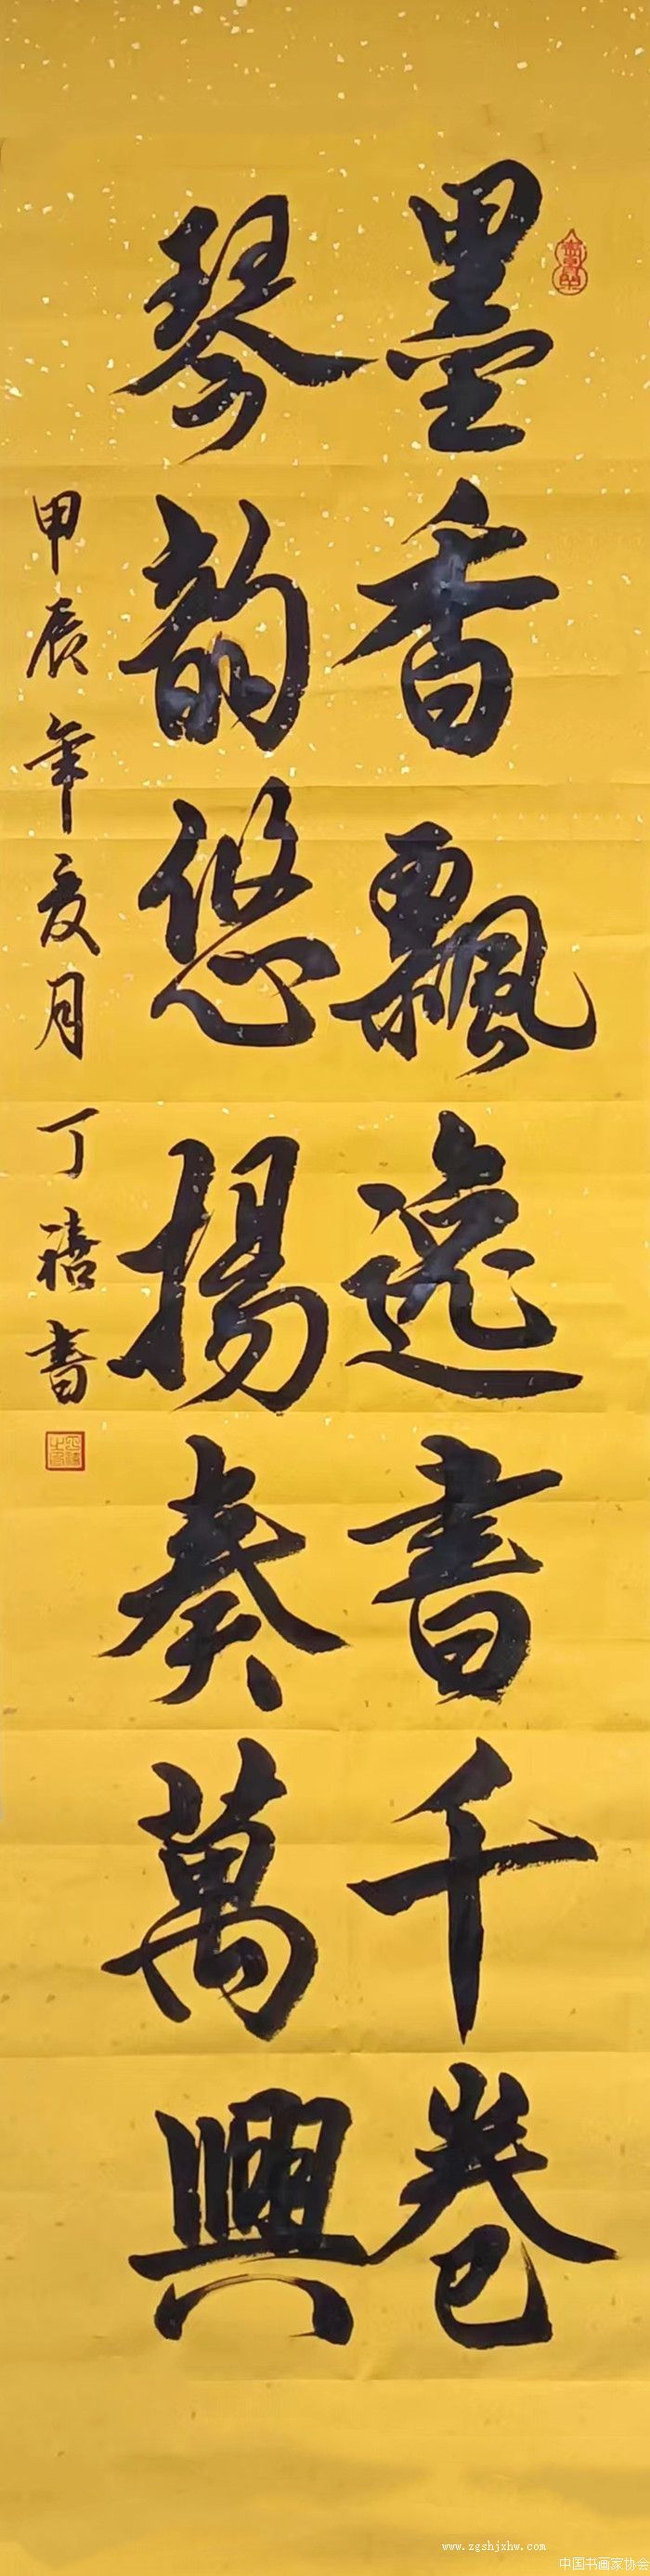 墨香飄逸書千卷
琴韵悠揚奏萬興
甲辰年夏月丁禧書
www.zgshjxhw.com
中国书画家协会